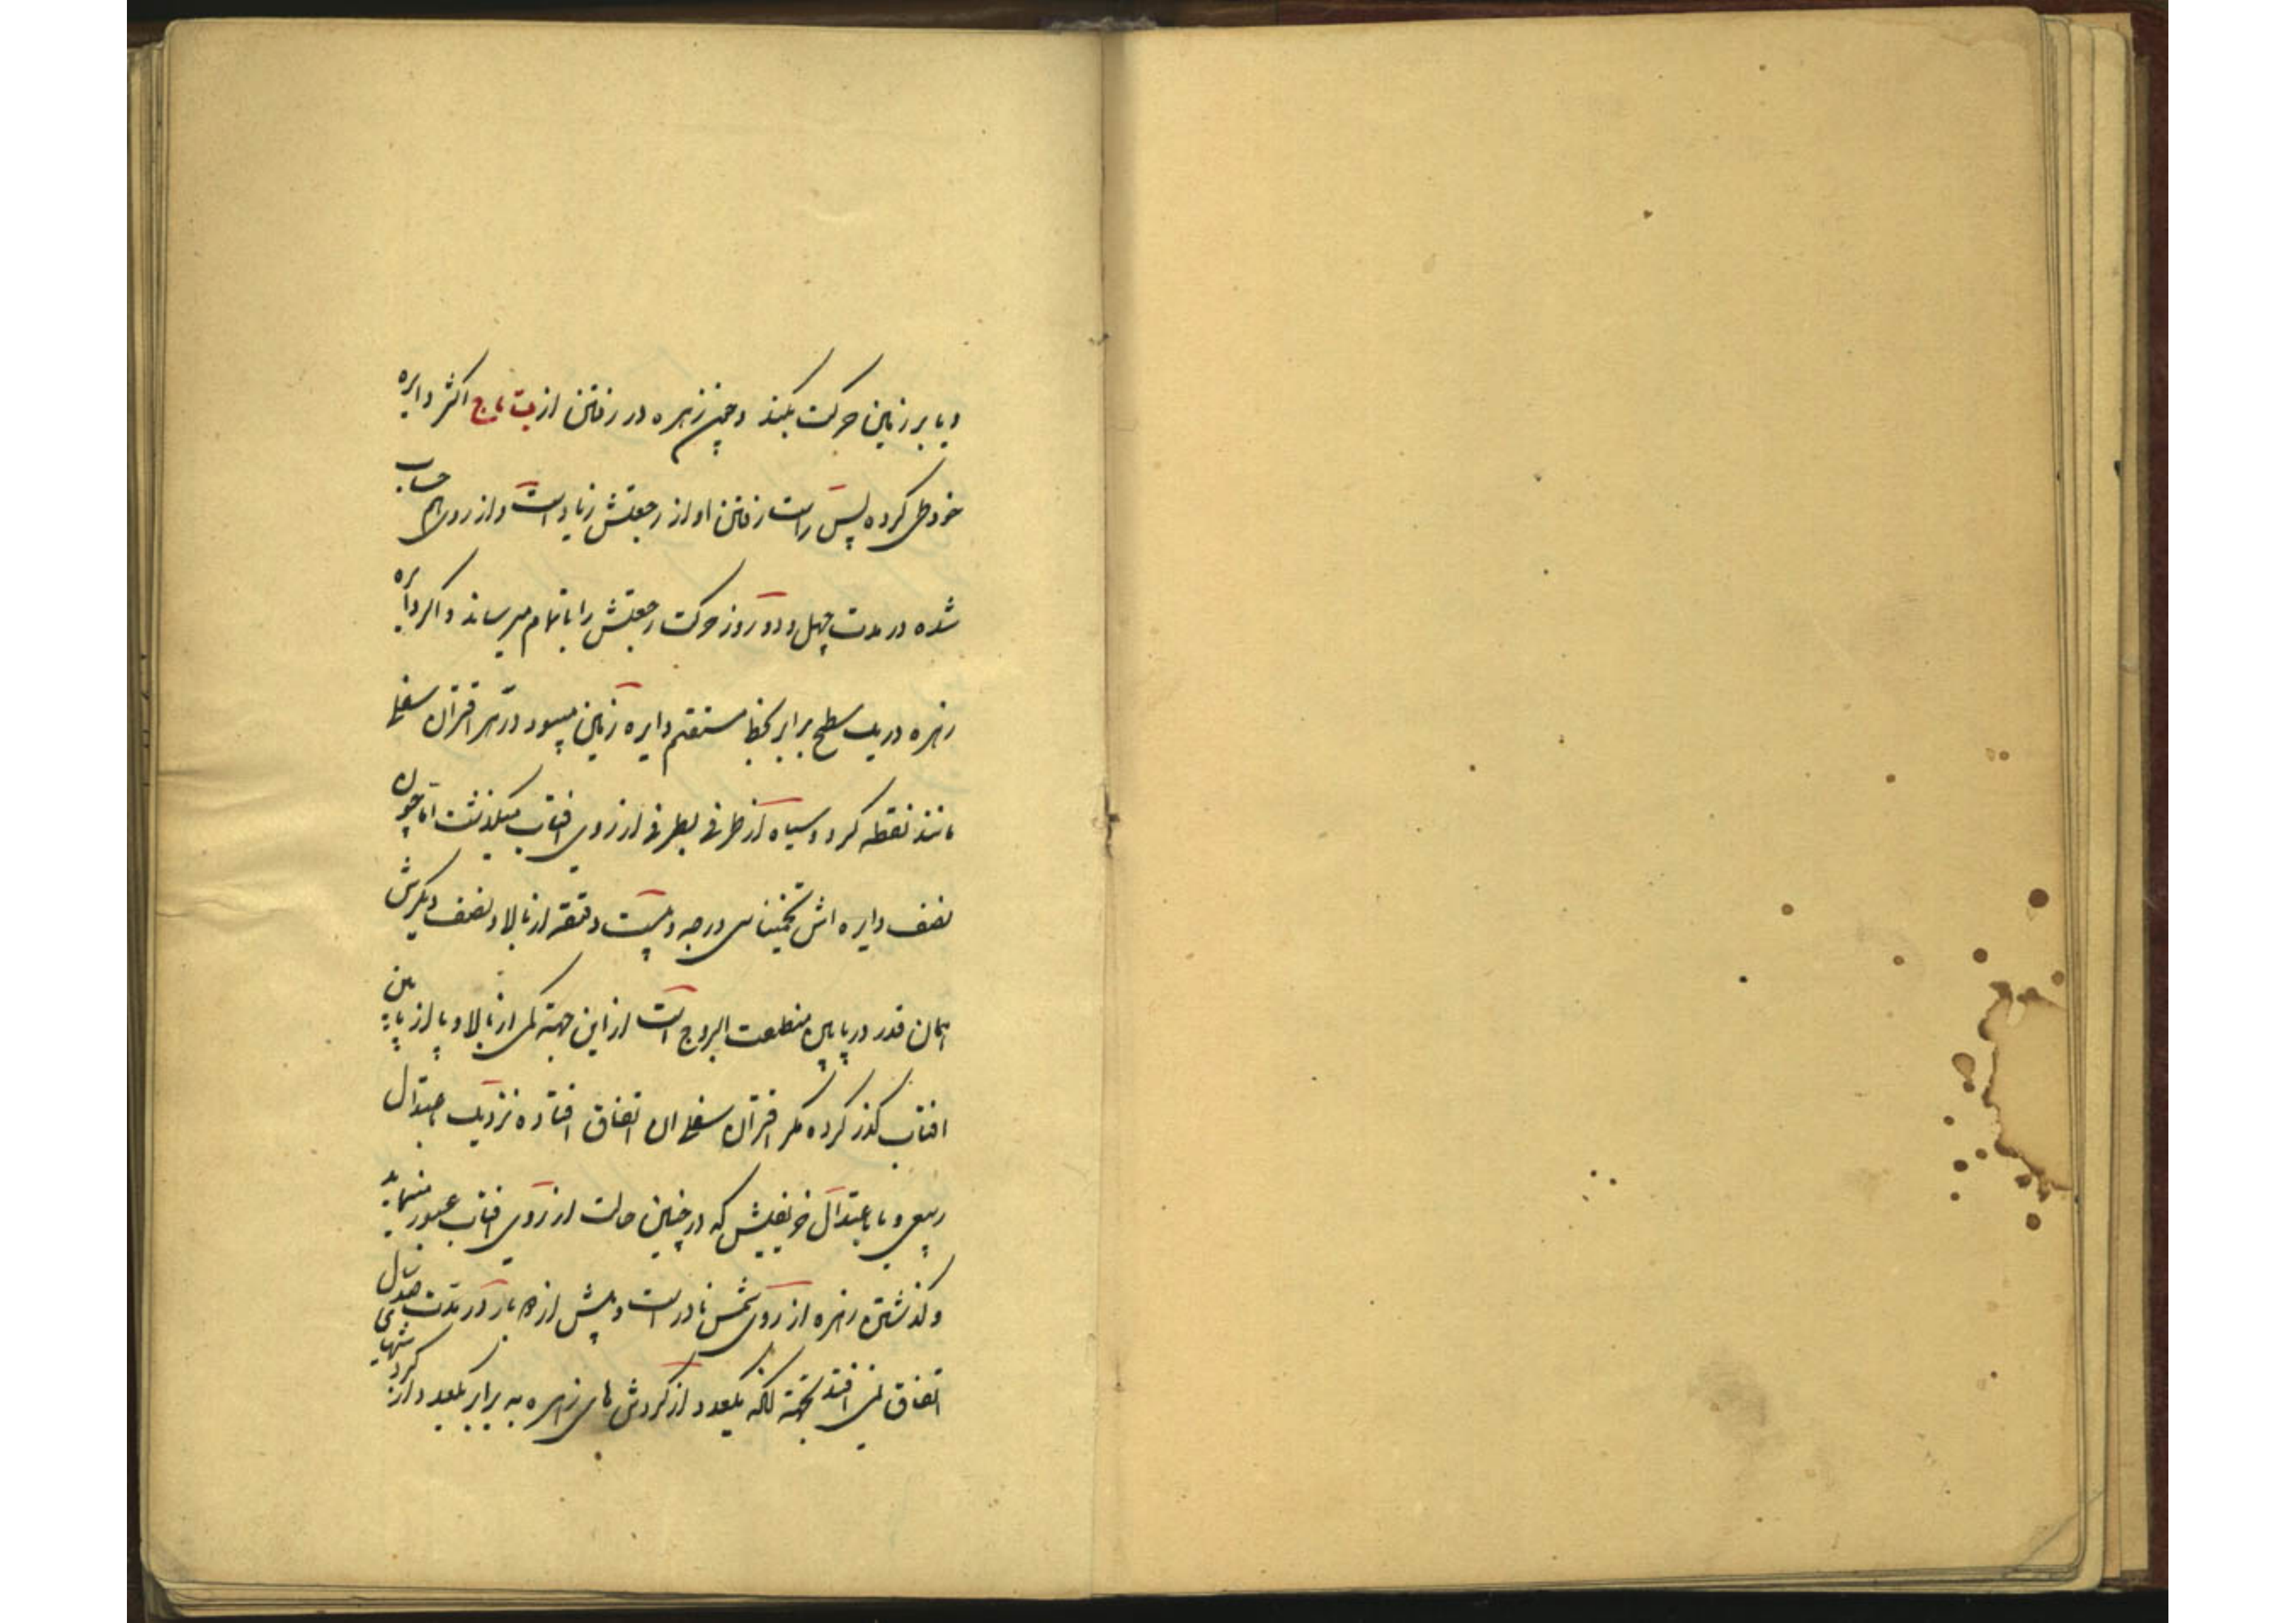 و یا بر زمین حرکت بکند و چون زهره در رفتن از ب تا ج اکثر دایره
خود طی کرده پس راست رفتن او از رجعتش زیاد است و از روی هم حساب
شده در مدت چهل و دو روز حرکت رجعتش را باتمام میرساند و اگر دایره
زهره در یک سطح برابر بخط مستقیم دایره زمین میبود در هر اقتران سفلی
مانند نقطه گرد و سیاه از طرفی بطرفی از روی افتاب میگذشت اما چون
نصف دایره اش تخمیناً سی درجه و بیست دقیقه از بالا و نصف دیگرش
همان قدر در پایین منطقت البروج است از این جهته کمی از بالا و یا از پایین
افتاب گذر کرده مگر اقتران سفلی ان اتفاق افتاده نزدیک اعتدال
ربیعی و یا باعتدال خریفیش که در چنین حالت از روی افتاب عبور مینماید
و گذشتن زهره از روی شمس نادر است و بیش از دو بار در مدت صد سال
اتفاق نمی افتد بجهته انکه یکعدد از گردش های زهره به برابر یکعدد از گردشهای